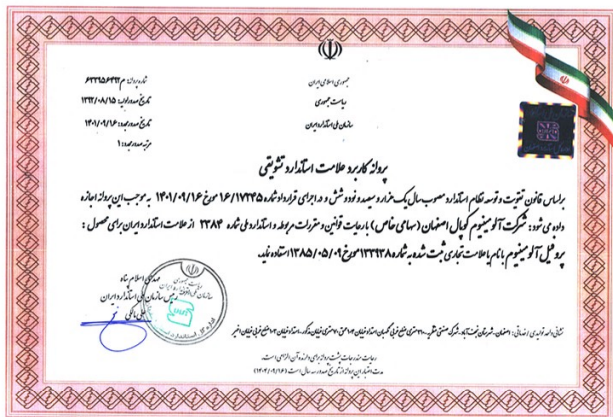 جمهوری اسلامی ایران
ریاست جمهوری
سازمان ملی استاندارد ایران
شماره پروانه:
تاریخ صدور اولیه: ۱۳۹۲/۰۸/۱۵
تاریخ صدور مجدد: ۱۴۰۱/۰۹/۱۶
مرتبه صدور مجدد: ۱
پروانه کاربرد علامت استاندارد تشویقی
براساس قانون تقویت و توسعه نظام استاندارد مصوب سال یک هزار و سیصد و نود و شش و در اجرای قرارداد شماره ۱۶/۱۷۲۴۵ مورخ ۱۴۰۱/۰۹/۱۶ به موجب این پروانه اجازه
داده می شود: شرکت آلومینیوم کوپال اصفهان (سهامی خاص) با رعایت قوانین و مقررات مربوطه و استاندارد ملی شماره ۲۳۸۴ از علامت استاندارد ایران برای محصول:
پروفیل آلومینیوم با نام یا علامت تجاری ثبت شده به شماره ۱۳۳۹۳۸ مورخ ۱۳۸۵/۰۵/۰۹ استفاده نماید.
مهدی اسلام پناه
رییس سازمان ملی استاندارد ایران
نشانی واحد تولیدی / خدماتی: اصفهان، شهرستان نجف آباد، شرکت صنعتی
رعایت مندرجات پشت پروانه برای دارنده آن الزامی است.
مدت اعتبار این پروانه از تاریخ صدور سه سال است (۱۴۰۴/۰۹/۱۶)